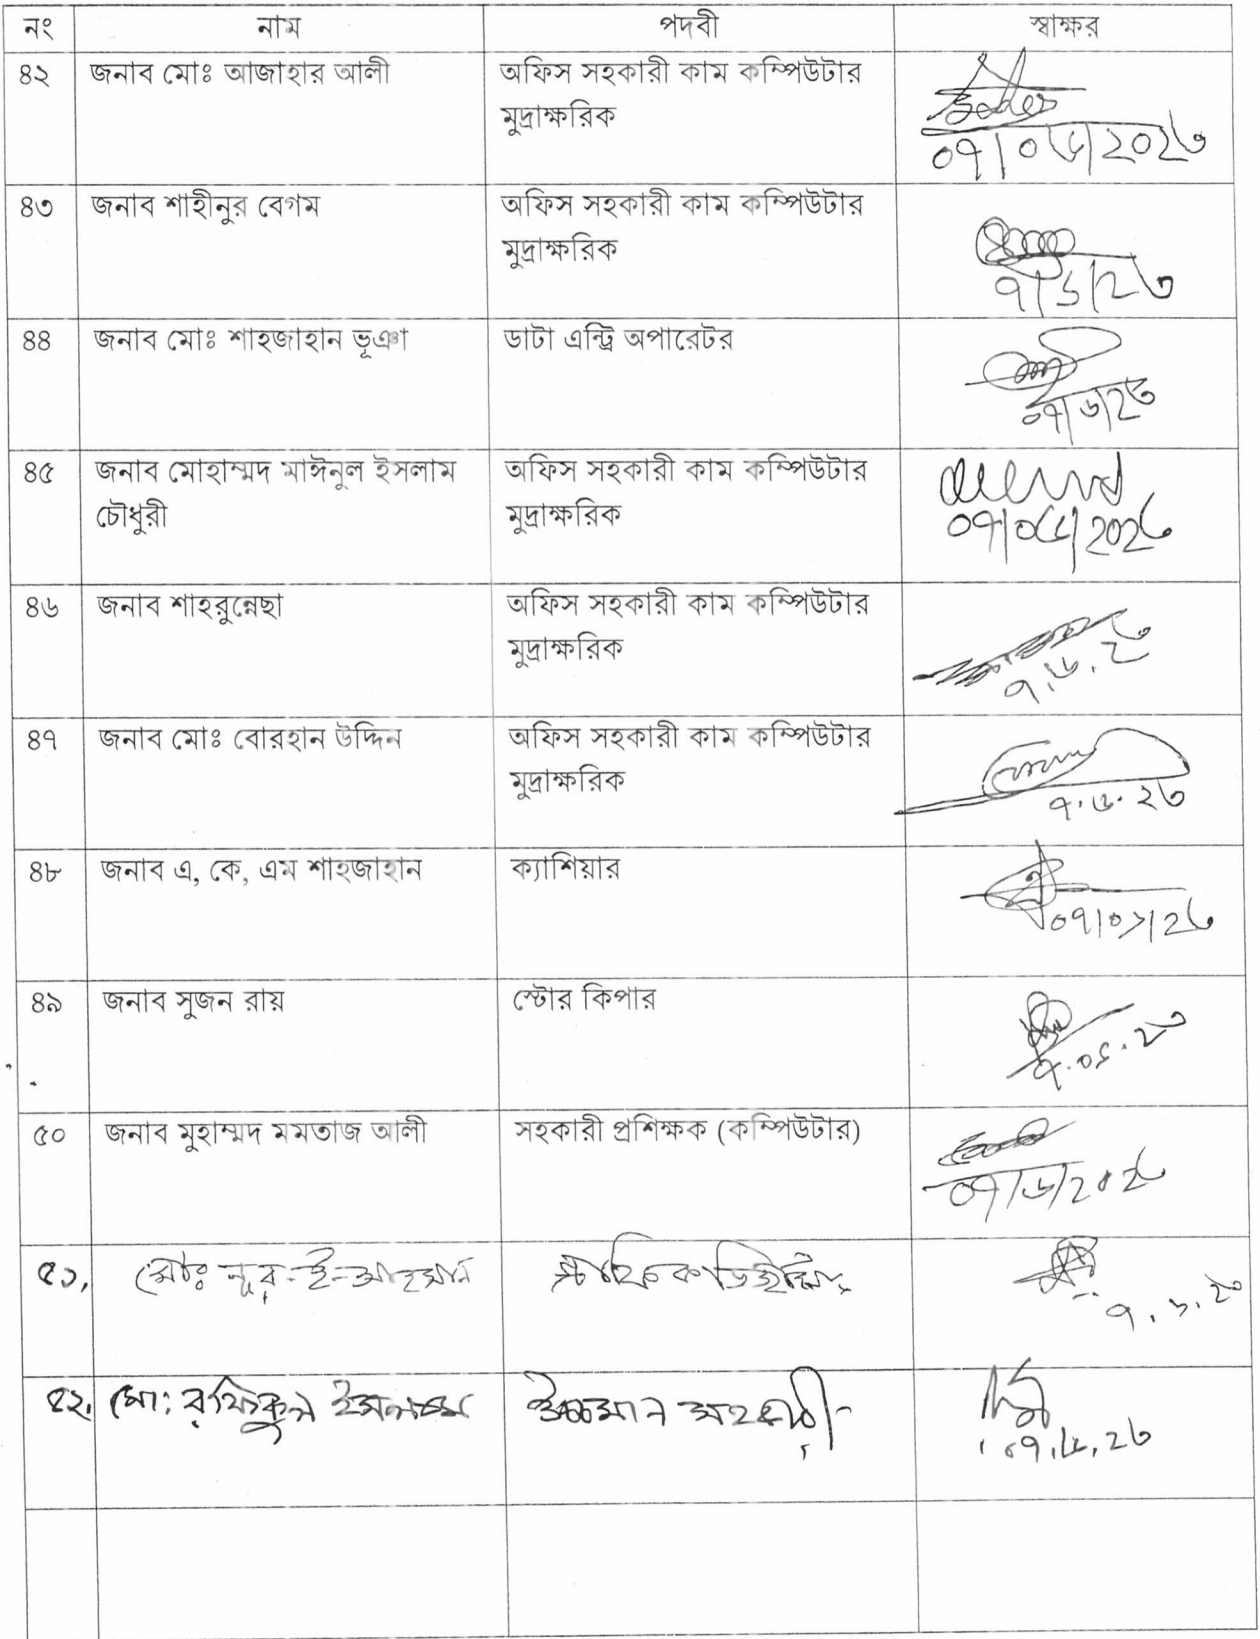 নং নাম পদবী স্বাক্ষর
৪২ জনাব মোঃ আজাহার আলী অফিস সহকারী কাম কম্পিউটার
মুদ্রাক্ষরিক
০৭/০৬/২০২৩
৪৩ জনাব শাহীনুর বেগম অফিস সহকারী কাম কম্পিউটার
মুদ্রাক্ষরিক
৭/৬/২৩
৪৪ জনাব মোঃ শাহজাহান ভূঞা ডাটা এন্ট্রি অপারেটর
০৭/৬/২৩
৪৫ জনাব মোহাম্মদ মাঈনুল ইসলাম অফিস সহকারী কাম কম্পিউটার
চৌধুরী মুদ্রাক্ষরিক
০৭/০৬/২০২৩
৪৬ জনাব শাহরুন্নেছা অফিস সহকারী কাম কম্পিউটার
মুদ্রাক্ষরিক
৭.৬.২৩
৪৭ জনাব মোঃ বোরহান উদ্দিন অফিস সহকারী কাম কম্পিউটার
মুদ্রাক্ষরিক
৭.৬.২৩
৪৮ জনাব এ, কে, এম শাহজাহান ক্যাশিয়ার
৪৯ জনাব সুজন রায় স্টোর কিপার
৭.০৬.২৩
৫০ জনাব মুহাম্মদ মমতাজ আলী সহকারী প্রশিক্ষক (কম্পিউটার)
০৭/৬/২০২৩
৫১, মোঃ নূর-ই-আহসান
৭.৬.২৩
৫২. মো: রফিকুল ইসলাম
০৭.৬.২৩